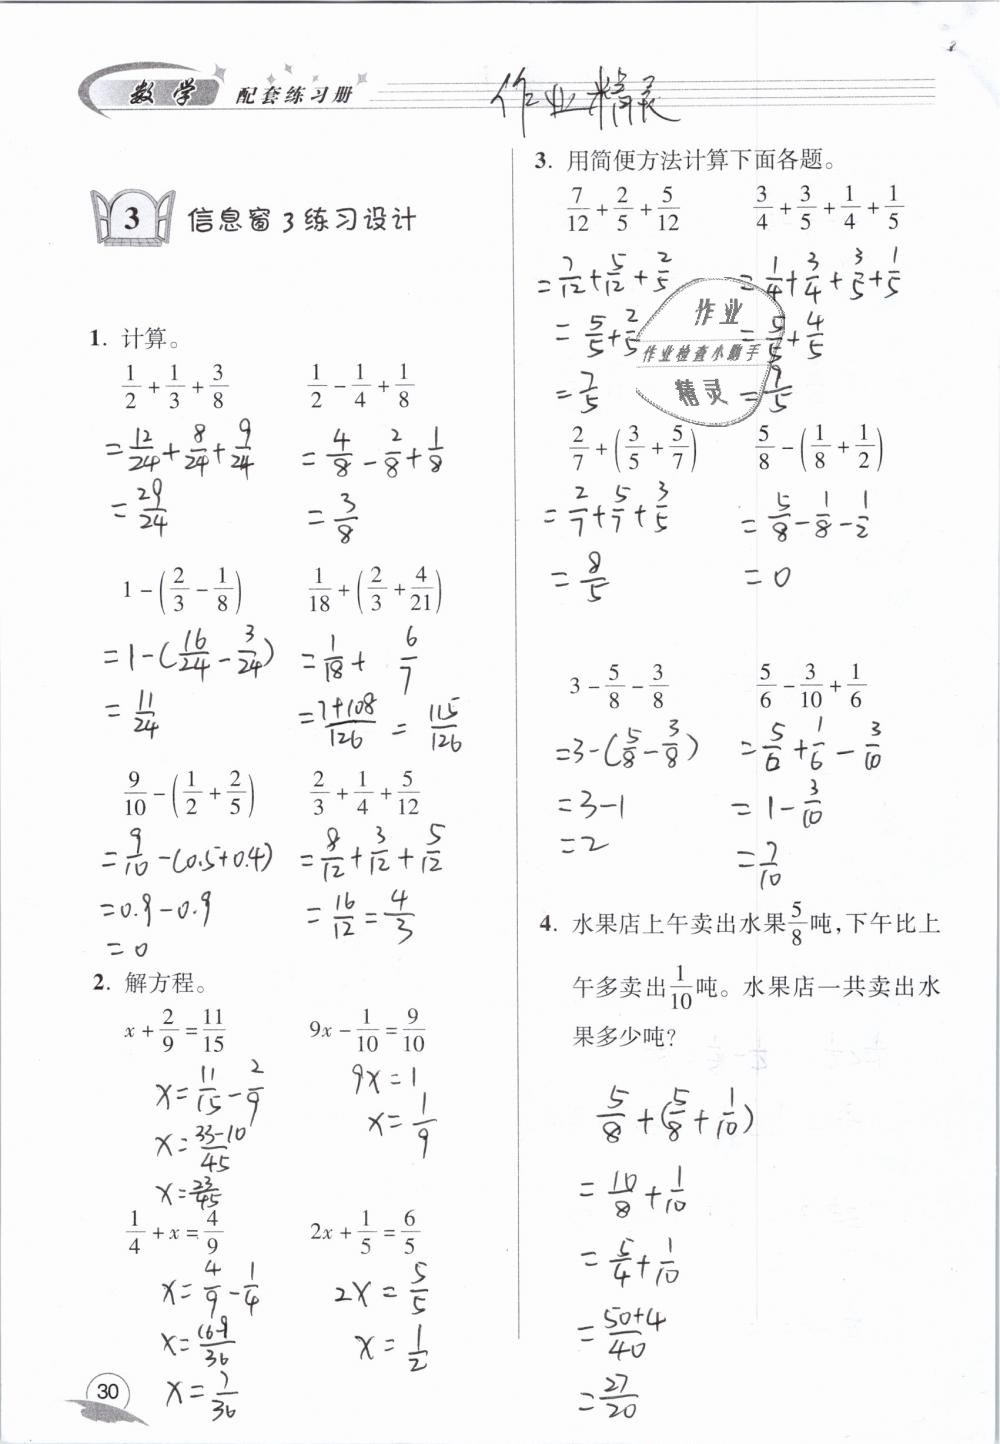 数学 配套练习册
作业精灵
3 信息窗3练习设计
1. 计算。
1/2 + 1/3 + 3/8
= 12/24 + 8/24 + 9/24
= 29/24
1/2 - 1/4 + 1/8
= 4/8 - 2/8 + 1/8
= 3/8
1 - (2/3 - 1/8)
= 1 - (16/24 - 3/24)
= 11/24
1/18 + (2/3 + 4/21)
= 1/18 + 6/7
= 7+108/126 = 115/126
9/10 - (1/2 + 2/5)
= 9/10 - (0.5+0.4)
= 0.9 - 0.9
= 0
2/3 + 1/4 + 5/12
= 8/12 + 3/12 + 5/12
= 16/12 = 4/3
2. 解方程。
x + 2/9 = 11/15
x = 11/15 - 2/9
x = 33-10/45
x = 23/45
9x - 1/10 = 9/10
9x = 1
x = 1/9
1/4 + x = 4/9
x = 4/9 - 1/4
x = 16-9/36
x = 7/36
2x + 1/5 = 6/5
2x = 5/5
x = 1/2
30
3. 用简便方法计算下面各题。
7/12 + 2/5 + 5/12
= 7/12 + 5/12 + 2/5
= 5/5 + 2/5
= 7/5
3/4 + 3/5 + 1/4 + 1/5
= 1/4 + 3/4 + 3/5 + 1/5
= 5/5 + 4/5
= 9/5
作业
作业检查小助手
精灵
2/7 + (3/5 + 5/7)
= 2/7 + 5/7 + 3/5
= 8/5
5/8 - (1/8 + 1/2)
= 5/8 - 1/8 - 1/2
= 0
3 - 5/8 - 3/8
= 3 - (5/8 - 3/8)
= 3 - 1
= 2
5/6 - 3/10 + 1/6
= 5/6 + 1/6 - 3/10
= 1 - 3/10
= 7/10
4. 水果店上午卖出水果5/8吨，下午比上
午多卖出1/10吨。水果店一共卖出水
果多少吨？
5/8 + (5/8 + 1/10)
= 10/8 + 1/10
= 5/4 + 1/10
= 50+4/40
= 27/20